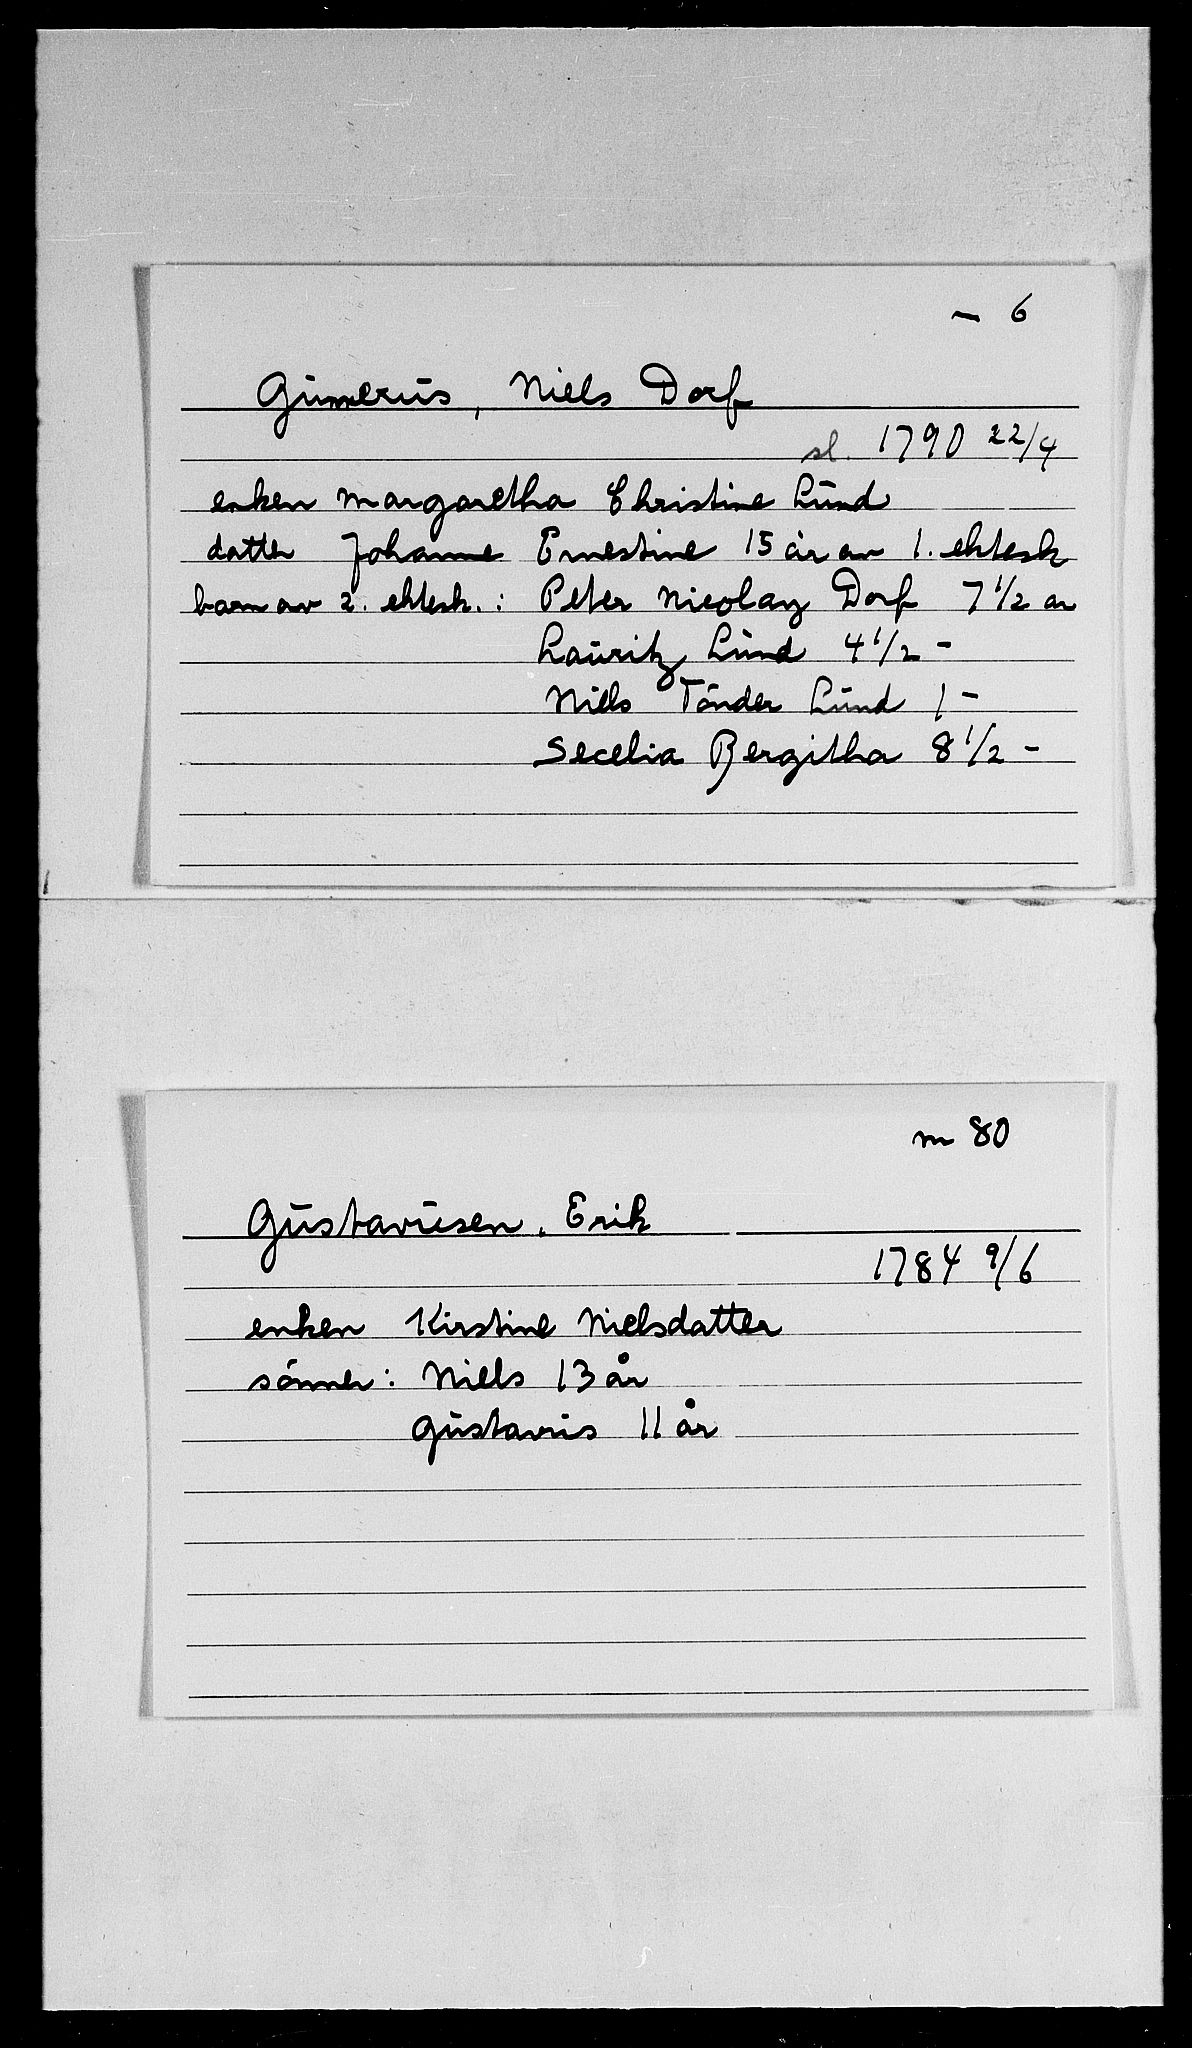 – 6
Gunnerus, Niels Dorf
sl. 1790 22/4
enken Margaretha Christine Lund
datter Johanne Ernestine 15 år av 1. ektesk
barn av 2. ektesk.: Peter Nicolay Dorf 7 1/2 år
Lauritz Lund 4 1/2 –
Niels Tönder Lund 1 –
Secelia Bergitha 8 1/2 –
m 80
Gustavusen, Erik
1784 9/6
enken Kirstine Nielsdatter
sönner: Niels 13 år
Gustavus 11 år